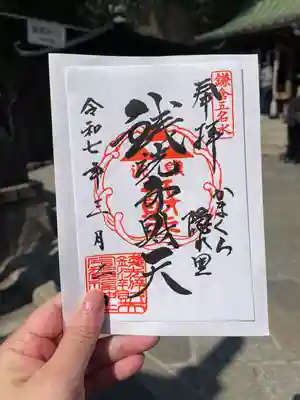 鎌倉五名水
奉拝
かまくら
隠れ里
銭洗弁財天
令和七年三月